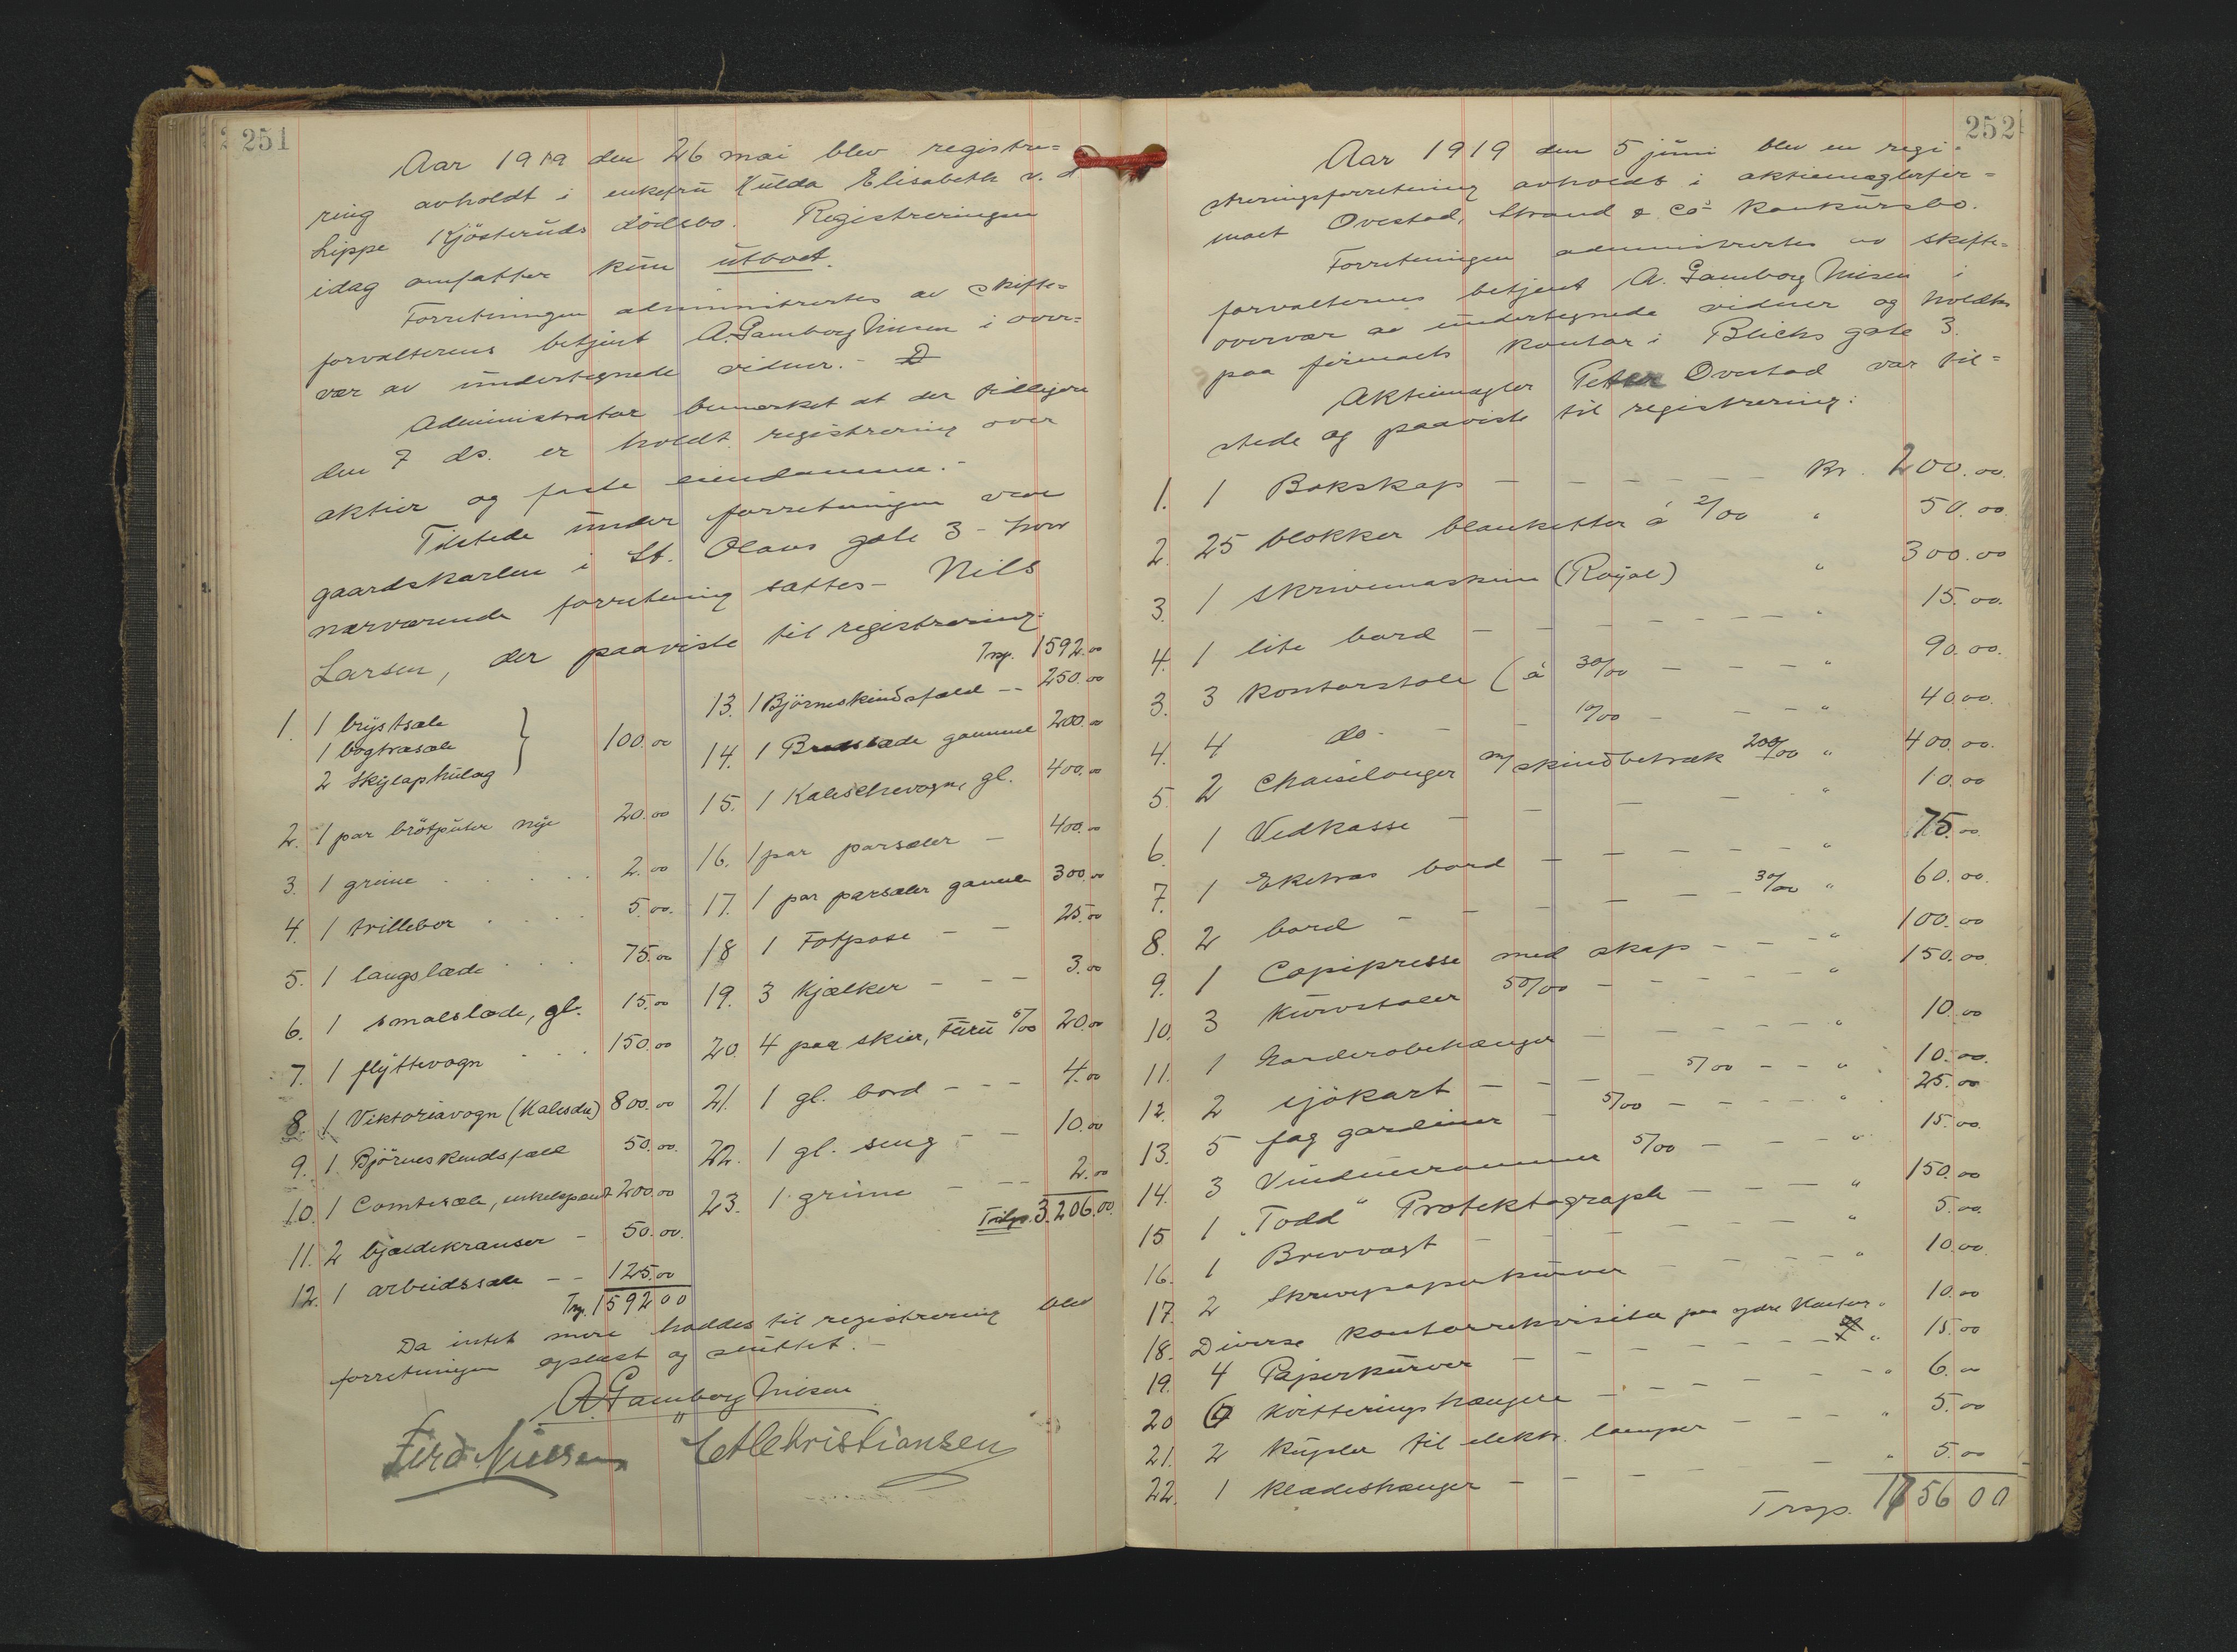 251
Aar 1919 den 26 mai blev registre=
ring avholdt i enkefru Hulda Elisabeth v. d
Lippe Kjösteruds dödsbo. Registreringen
idag omfatter kun utboet.
Forretningen administrertes av skifte=
forvalterens betjent A. Gamborg Nilsen i over=
vær av undertegnede vidner. -
Administrator bemerket at der tidligere
den 7 ds. er holdt registrering over
aktier og faste eiendomme. -
Tilstede under forretningen var
gaardskarlen i St. Olavs gate 3 - hvor
nærværende forretning sattes - Nils
Larsen, der paaviste til registrering:
1. 1 brystsæle
1 bogtræsæle
2 skylaphulag } 100.00
2. 1 par brötputer nye 20.00
3. 1 grime . . . . . 2.00
4. 1 trillebor . . . . 5.00.
5. 1 langslæde . . . 75.00
6. 1 smalslæde, gl. 15.00
7. 1 flyttevogn . . . 150.00
8. 1 Viktoriavogn (Kalesche) 800.00
9. 1 Björneskindsfæll 50.00.
10. 1 Comtesæle, enkelspænd 200.00
11. 2 bjældekranser - 50.00.
12. 1 arbeidssæle - - 125.00
Trsp. 1592 00
Trsp. 1592.00
13. 1 Björneskindsfæld - - 250.00
14. 1 Bredslæde gammel 200.00
15. 1 Kaleschevogn, gl. 400.00
16. 1 par parsæler - 400.00
17. 1 par parsæler gamle 300.00
18 1 Fotpose - - 25.00
19. 3 Kjælker - - - 3.00
20. 4 par skier, Furu 5/00 20.00
21. 1 gl. bord - - - 4.00
22. 1 gl. seng - - 10.00
23. 1 grime - - - 2.00
Tilsp. 3.206.00.
Da intet mere haddes til registrering blev
forretningen oplæst og sluttet. -
A. Gamborg Nilsen
Ferd Nielsen Chr. Kristiansen
252
Aar 1919 den 5 juni blev en regi-
streringsforretning avholdt i aktiemæglerfir=
maet Ovestad, Strand & Co's konkursbo.
Forretningen administrertes av skifte=
forvalterens betjent A. Gamborg Nilsen i
overvær av undertegnede vidner og holdtes
paa firmaets kontor i Blichs gate 3.
Aktiemægler Petter Ovestad var til=
stede og paaviste til registrering:
1. 1 Bokskap - - - - - Kr. 200.00
2. 25 blokker blanketter á 2/00 " 50.00
3. 1 skrivemaskine (Royal) " 300.00
4. 1 lite bord - - - - - - - " 15.00.
3. 3 kontorstole (á 30/00 - - - - " 90.00.
4. 4 do. - - 10/00 - - - " 40.00.
5. 2 Chaiselonger m/ skindbetræk 200/00 " 400.00.
6. 1 Vedkasse - - - - - " 10.00
7. 1 Eketræs bord - - - - - - " 75.00
8. 2 bord - - - - - - 30/00 " 60.00.
9. 1 Copipresse med skap - - - " 100.00
10. 3 Kurvstoler 50/00 - - - - - " 150.00
11. 1 Garderobehænger - - - - - - " 10.00
12. 2 sjökart - - - - 5/00 - - " 10.00.
13. 5 fag gardiner - 5/00 - - - - " 25.00
14. 3 Vinduerammer 5/00 - - - " 15.00.
15 1 "Todd" Protektograph - - - - " 150.00
16. 1 Brevvægt - - - - - - " 5.00.
17. 2 Skrivepapirkurver - - - - - " 10.00.
18. Diverse kontorrekvisita paa ydre kontor " 10.00
19. 4 Papirkurver - - - - - - " 15.00
20 6 Kvitteringshængere - - - - - - " 6.00
21. 2 kupler til elektr. lamper - - - - " 5.00
22. 1 klædeshænger - - - - - " 5.00
Trsp. 1756 00